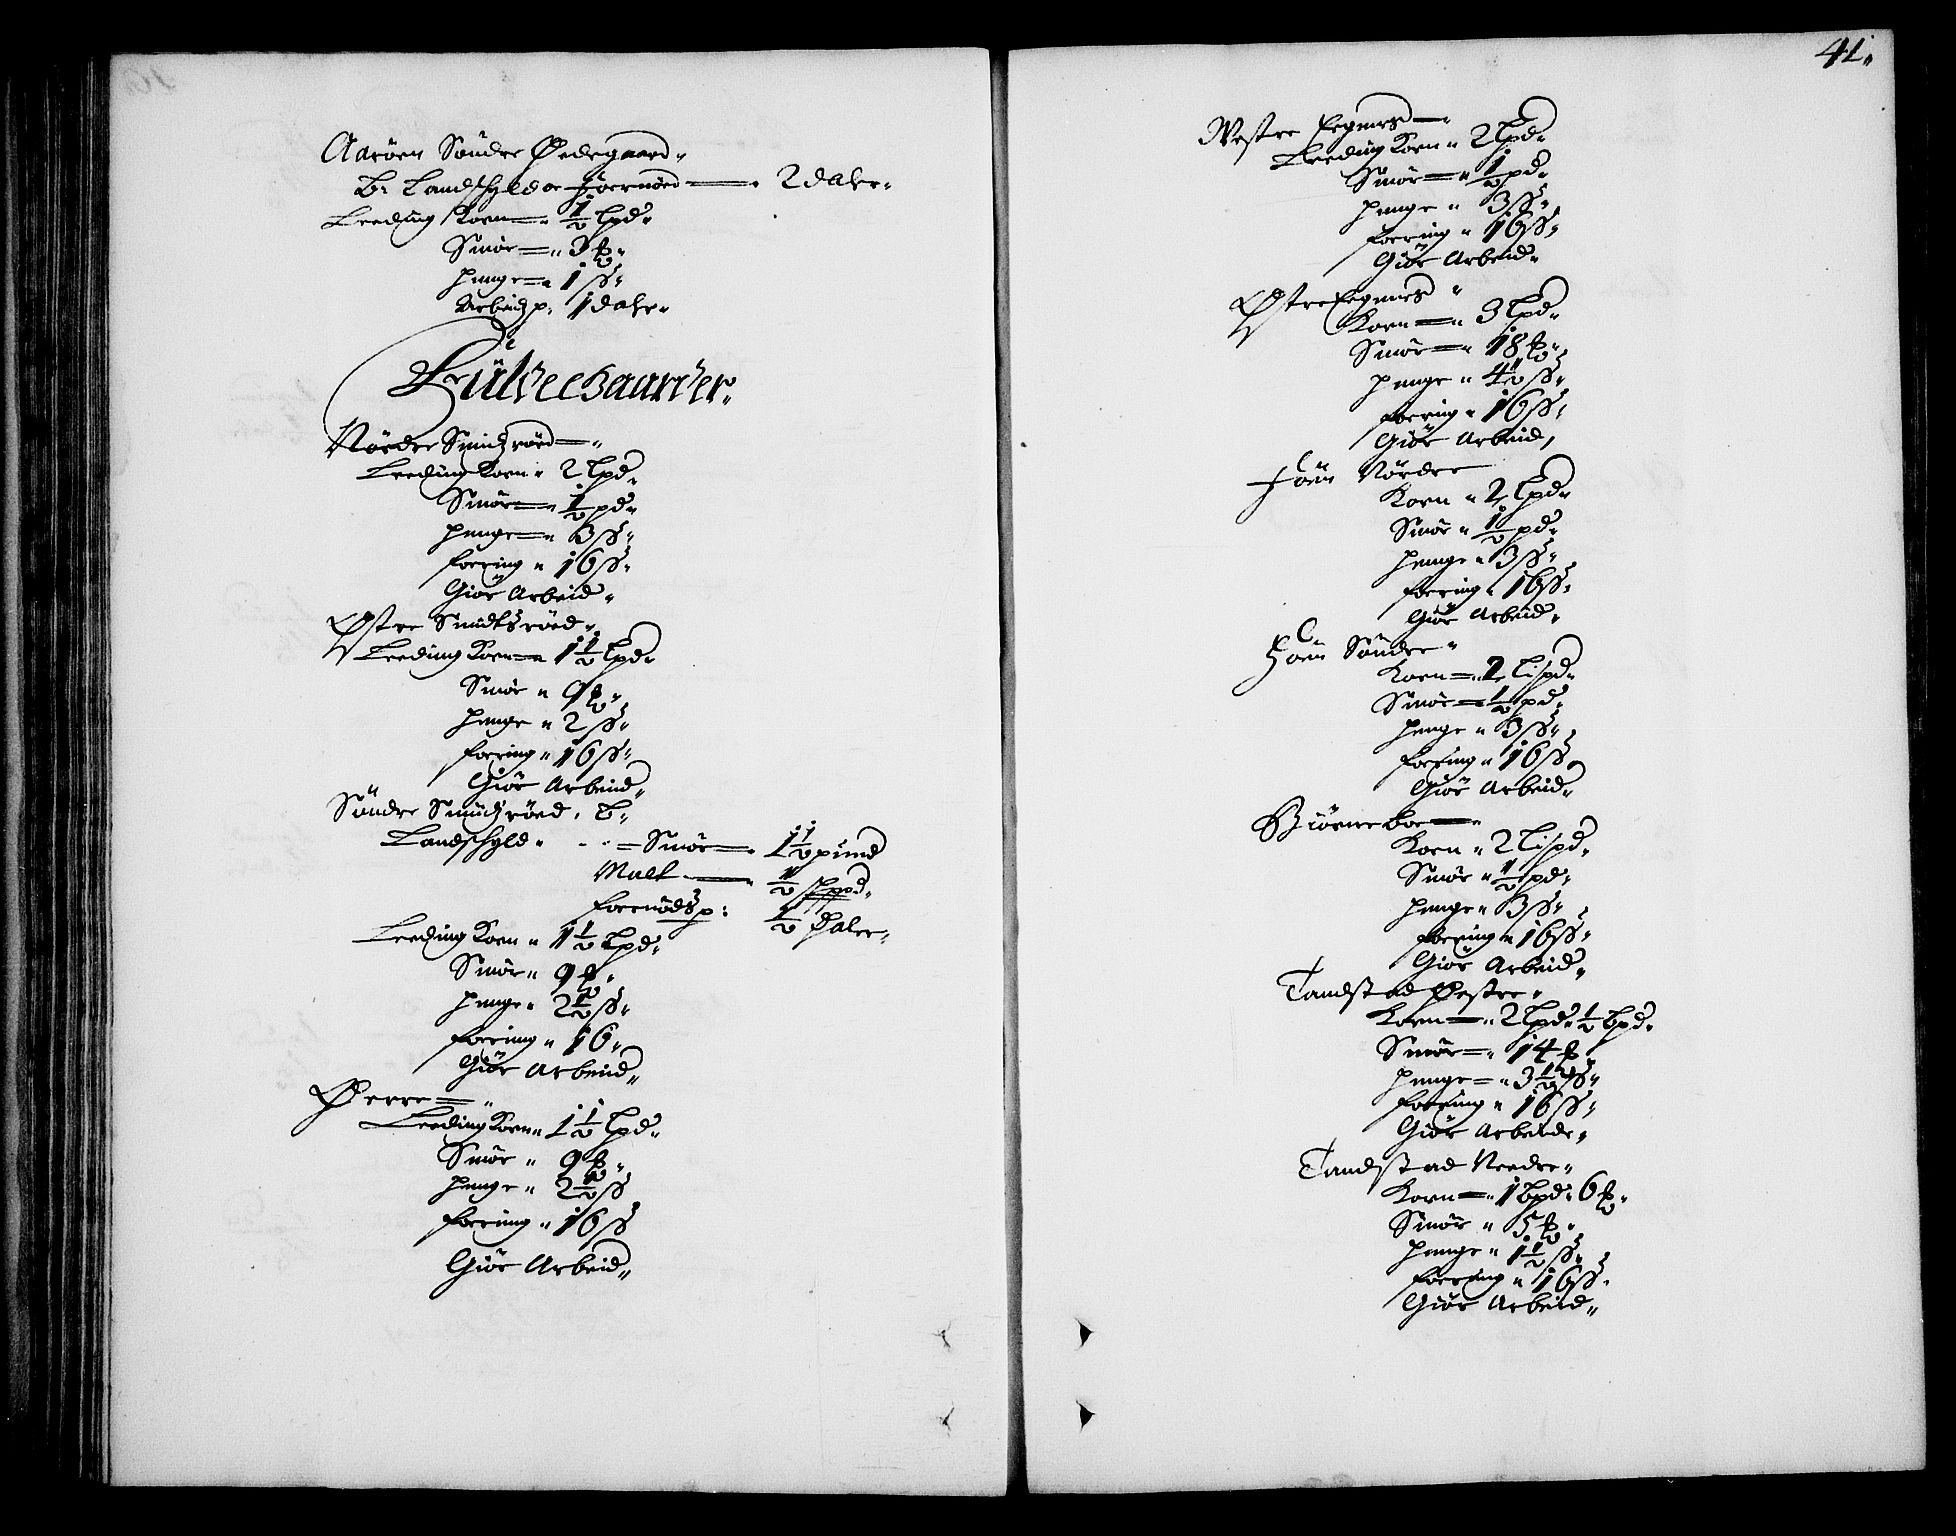 Aaröen Söndre Ødegaard„
B: Landschyld oc Foernöed — 2 daler„
Leeding Korn — „ ½ lpd„
Smör — „ 3 ℔„
penge — „ 1 ß„
Arbeidtz p: 1 daler„
Fulde Gaarder„
Nördre Smidtzröed — „
Leeding Korn „ 2 lpd„
Smör — „ ½ pd„
penge — „ 3 ß„
foering „ 16 ß„
Giör Arbeid„
Østre Smidtsröed„
Leeding Korn — „ 1½ lpd„
Smör „ 9 ℔„
penge „ 2 ß„
foering „ 16 ß„
Giör Arbeid„
Söndre Smidtzröed, B„
Landschyld „ — Smör — „ 1½ pund
Malt — „ ½ schppd„
foernödtz p: ½ Daler„
Leeding Korn „ 1½ Lpd„
Smör „ 9 ℔„
penge „ 2½ ß„
foering „ 16„
Giör Arbeid„
Øerre — „
Leeding Korn „ 1½ lpd„
Smör „ 9 ℔„
penge „ 2½ ß
foering „ 16 ß
Giör Arbeid„
41„
Westre Eegenes — „
Leeding Korn „ 2 lpd„
Smör — „ ½ pd„
penge „ 3 ß„
foering „ 16 ß„
Giör Arbeid„
Østre Eegenes „
Korn — „ 3 lpd„
Smör — „ 18 ℔„
penge „ 4½ ß„
foering „ 16 ß„
Giör Arbeid,
Foen Nördre
Korn „ 2 lpd„
Smör „ ½ pd„
penge „ 3 ß„
foering „ 16 ß„
Giör Arbeid„
Foen Söndre „
Korn — „ 2 lispd„
Smör — ½ pd„
penge „ 3 ß„
foering „ 16 ß„
Giör Arbeid„
Biörneboe — „
Korn „ 2 lispd„
Smör „ ½ pd„
penge „ 3 ß„
foering „ 16 ß„
Giör Arbeid„
Tandstad Westre„
Korn — „ 2 lpd„ ½ Lpd„
Smör — „ 14 ℔„
penge — „ 3½ ß„
foering „ 16 ß„
Giör Arbeide„
Tandstad Needre„
Korn — „ 1 Lpd„ 6 ℔„
Smör „ 5 ℔„
penge „ 1½ ß„
foering „ 16 ß„
Giör Arbeid„